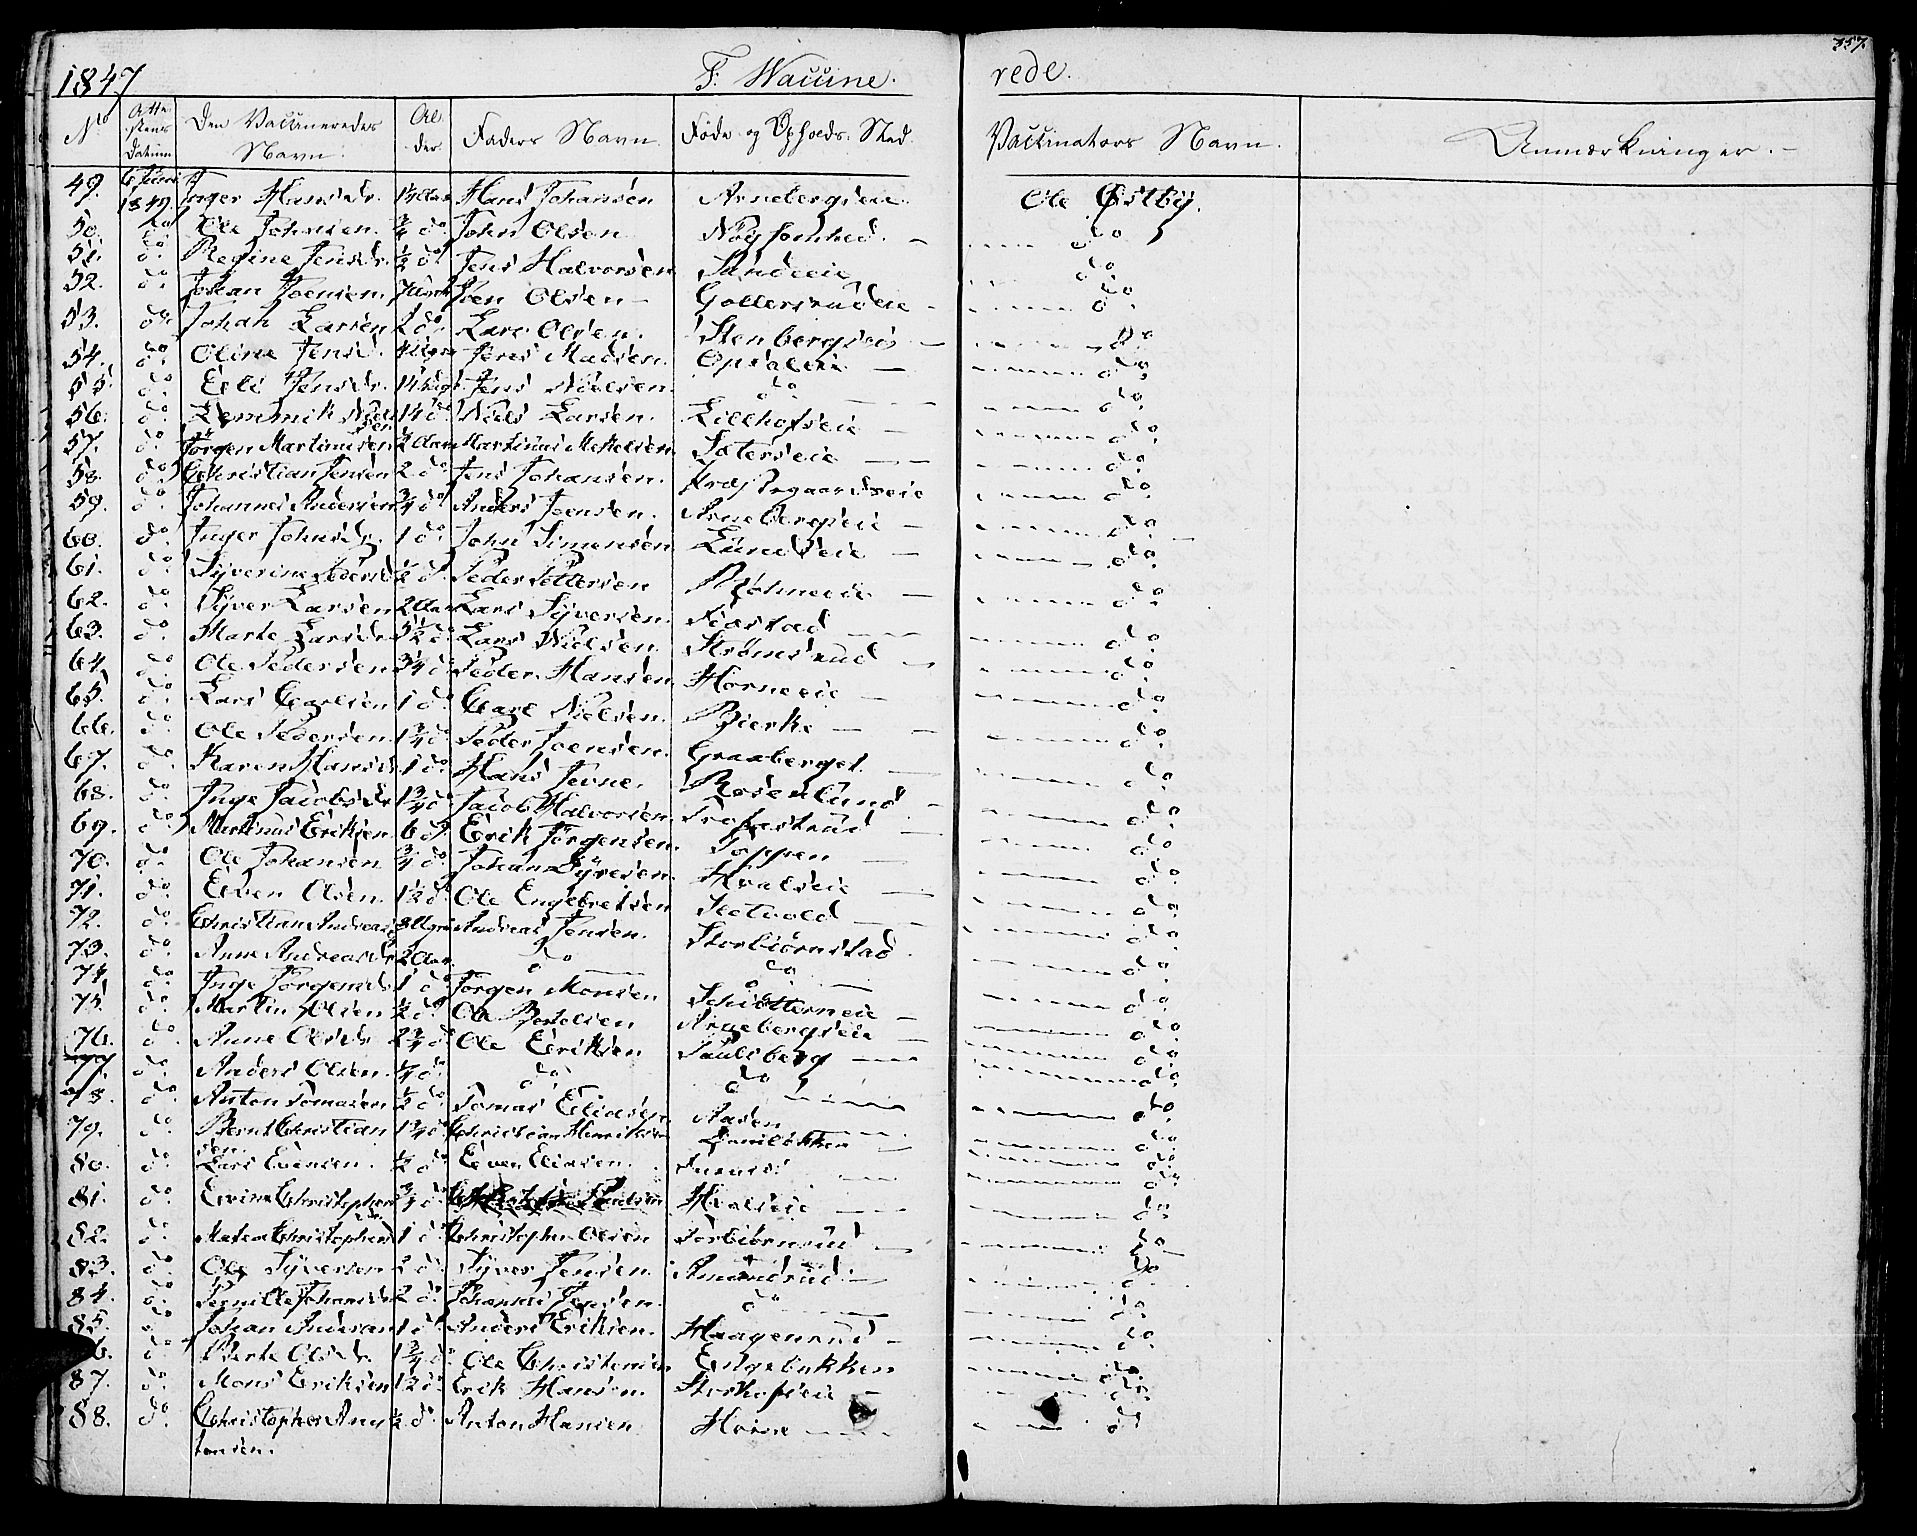 357.
1847 F. Waccine. rede.
No Atte stens Datum Den Vaccineredes Navn. Al. der. Faders Navn. Føde og Opholds Sted. Vaccinators Navn. Anmærkninger.
49. 6 Juni 1847 Inger Hansdr. 1/4 Aar Hans Johansen Arnebergseie. Ole Østby.
50. do Ole Johnsen. 3/4 do John Olsen Nøgsomhed. do
51. do Regine Jensdr. 1/2 do Jens Halvorsen Sandeeie do
52. do Johan Joensen. Joen Olsen do
53. do Johan Larsen 2 do Lars Olsen. Stenbergseie do
54. do Oline Jensd. Jens Madsen. Opsaleie do
55. do Eli Jensdr. Jens Nielsen. do do
56. do Lemmik Nielsen 14 do Niels Larsen. Lillhofseie do
57. do Jörgen Martinussen 1/2 Aar Martinus Mikkelsen. Sæterseie do
58. do Christian Jensen 2 do Jens Johansen. Præstegaardseie do
59. do Johannes Andersen 3/4 do Anders Joensen. Arnebergseie do
60. do Inger Johnsdr. 1 do John Simensen Lundseie do
61. do Syverine Pedersd 1/2 do Peder Pettersen do
62. do Syver Larsen 2 Aar Lars Syversen. Fiæstad do
63. do Marte Larsdr 5 1/2 do Lars Nielsen. Strømsrud do
64. do Ole Pedersen 3/4 do Peder Hansen Horneeie do
65. do Lars Carlsen 1 do Carl Nielsen. Bierke do
66. do Ole Pedersen. 1 3/4 do Peder Joensen. Graaberget do
67. do Karen Hansd 1 do Hans Jevne. Rosenlund do
68. do Inge Jacobsdr 1 3/4 do Jacob Halvorsen do
69. do Martinus Eriksen 6 do Erik Jörgensen. Toppen do
70. do Ole Johansen 3/4 do Johan Syversen. Hvalseie do
71. do Even Olsen. 1 1/2 do Ole Engebretsen do
72. do Christian Andreas Andreas Jensen. Storbiørnstad do
73. do Anne Andreasdr 2 Aar. do do do
74. do Inge Jörgensdr 1 do Jörgen Monsen Schiötterneie do
75. do Martin Olsen 1/2 do Ole Arnebergseie do
76. do Anne Olsdr 2 3/4 do Ole Eriksen Paulsberg do
77. do Anders Olsen. 1/4 do do do do
78. do Anton Tomasen 1/2 do Tomas Eliasen Aasen do
79. do Bernt Christiansen. 1 3/4 do Christian Henriksen do
80. do Lars Evensen. 1/2 do Even Eliasen. Furnes do
81. do Evine Christophers 3/4 do Hvalseie do
82. do Matea Christophersd 1 do Christopher Olsen Torbiörnsrud do
83. do Ole Syversen 2 do Syver Jensen. Amundrud do
84. do Pernille Johansdr 2 do Johannes Jensen. do do
85. do Johan Andersen 1 do Anders Eriksen. Haagensrud do
86. do Berte Olsdr. 1 3/4 do Ole Christensen Engebakken do
87. do Mons Eriksen 1 1/2 do Erik Hansen. Storhofseie do
88. do Christopher Antonsen. 1/2 do Anton Hansen do